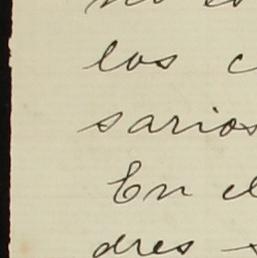 los c
sarios
En el
dres